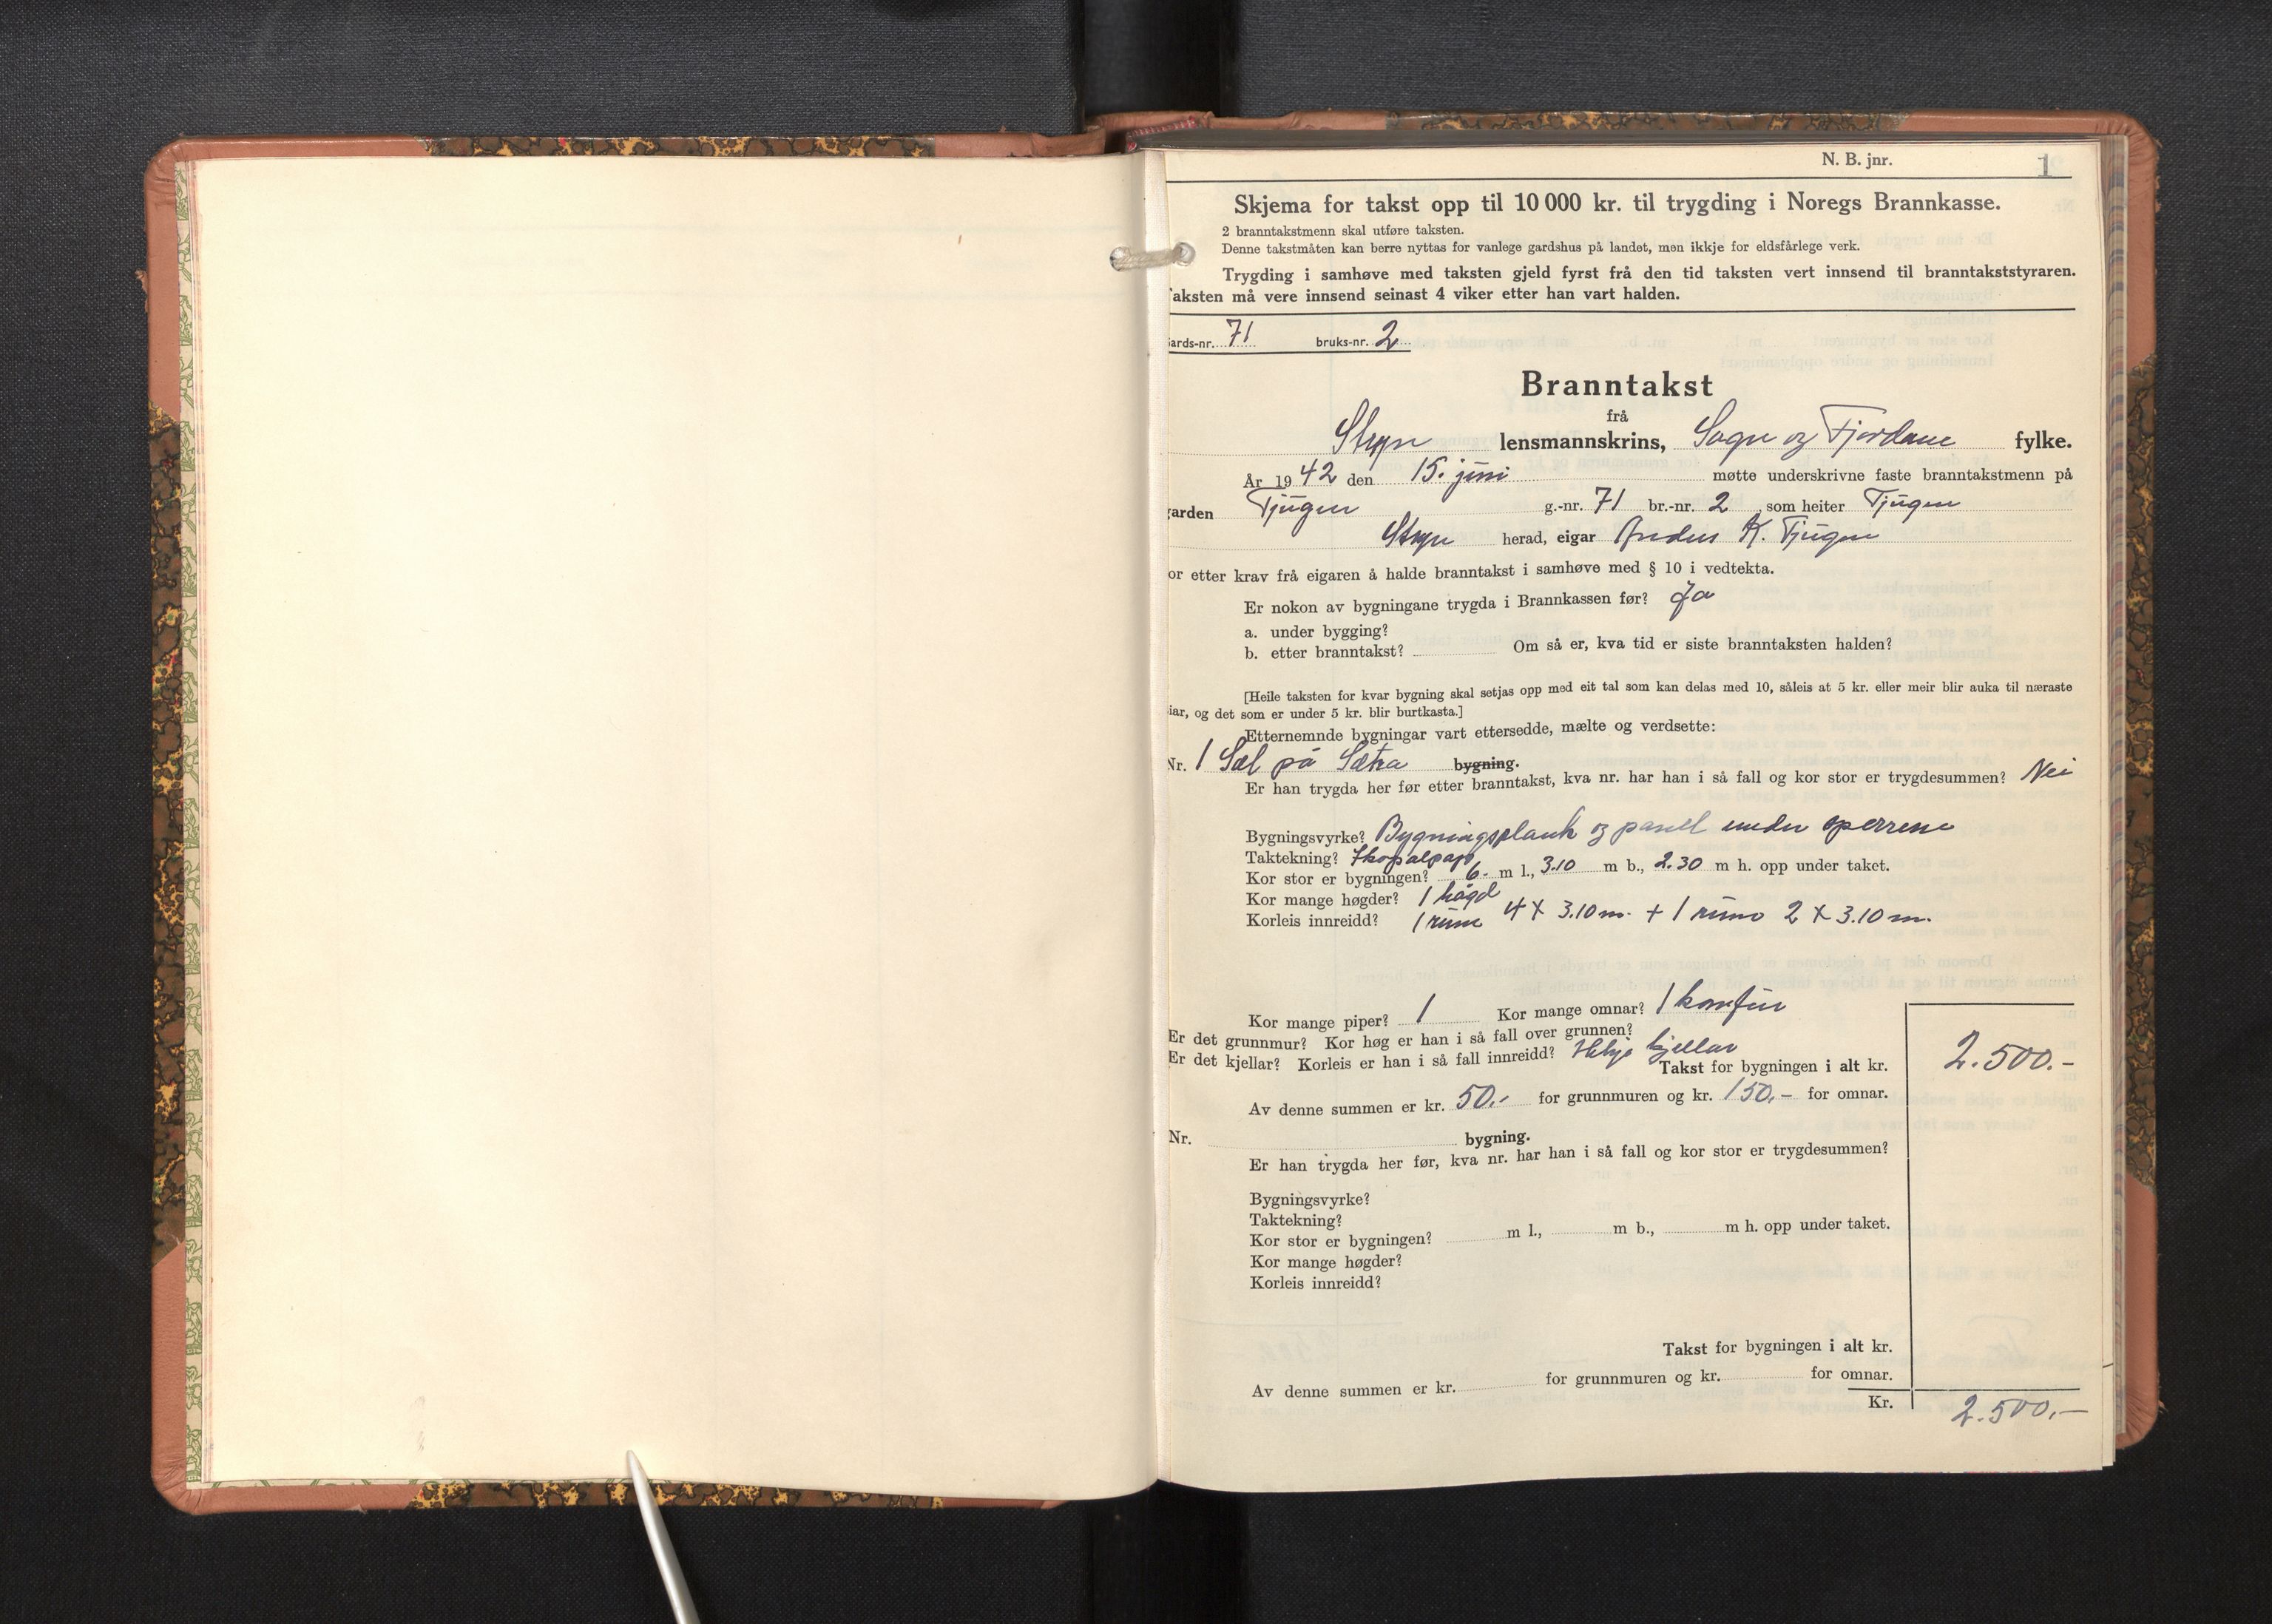 N. B. jnr.
1
Skjema for takst opp til 10 000 kr. til trygding i Noregs Brannkasse.
2 branntakstmenn skal utføre taksten.
Denne takstmåten kan berre nyttas for vanlege gardshus på landet, men ikkje for eldsfårlege verk.
Trygding i samhøve med taksten gjeld fyrst frå den tid taksten vert innsend til branntakststyraren.
aksten må vere innsend seinast 4 viker etter han vart halden.
ards-nr. 71 bruks-nr. 2
Branntakst
frå
Stryn lensmannskrins, Sogn og Fjordane fylke.
År 1942 den 15. juni møtte underskrivne faste branntakstmenn på
garden Tjugen g.-nr. 71 br.-nr. 2 som heiter Tjugen
Stryn herad, eigar Anders K. Tjugen
or etter krav frå eigaren å halde branntakst i samhøve med § 10 i vedtekta.
Er nokon av bygningane trygda i Brannkassen før? Ja
a. under bygging?
b. etter branntakst? Om så er, kva tid er siste branntaksten halden?
[Heile taksten for kvar bygning skal setjas opp med eit tal som kan delas med 10, såleis at 5 kr. eller meir blir auka til næraste
iar, og det som er under 5 kr. blir burtkasta.]
Etternemnde bygningar vart ettersedde, mælte og verdsette:
Nr. 1 Sel på Sætra bygning.
Er han trygda her før etter branntakst, kva nr. har han i så fall og kor stor er trygdesummen? Nei
Bygningsvyrke? Bygningsplank og panel under sperrene
Taktekning? Skopalpapp
Kor stor er bygningen? 6.- m l., 3.10 m b., 2.30 m h. opp under taket.
Kor mange høgder? 1 høgd
Korleis innreidd? 1 rum 4 x 3.10 m. + 1 rum 2 x 3.10 m.
Kor mange piper? 1 Kor mange omnar? 1 komfur
Er det grunnmur? Kor høg er han i så fall over grunnen?
Er det kjellar? Korleis er han i så fall innreidd? Ikkje kjellar
Takst for bygningen i alt kr. 2.500.-
Av denne summen er kr. 50.- for grunnmuren og kr. 150,- for omnar.
Nr. bygning.
Er han trygda her før, kva nr. har han i så fall og kor stor er trygdesummen?
Bygningsvyrke?
Taktekning?
Kor stor er bygningen? m l., m b., m h. opp under taket.
Kor mange høgder?
Korleis innreidd?
Takst for bygningen i alt kr.
Av denne summen er kr. for grunnmuren og kr. for omnar.
Kr. 2.500,-